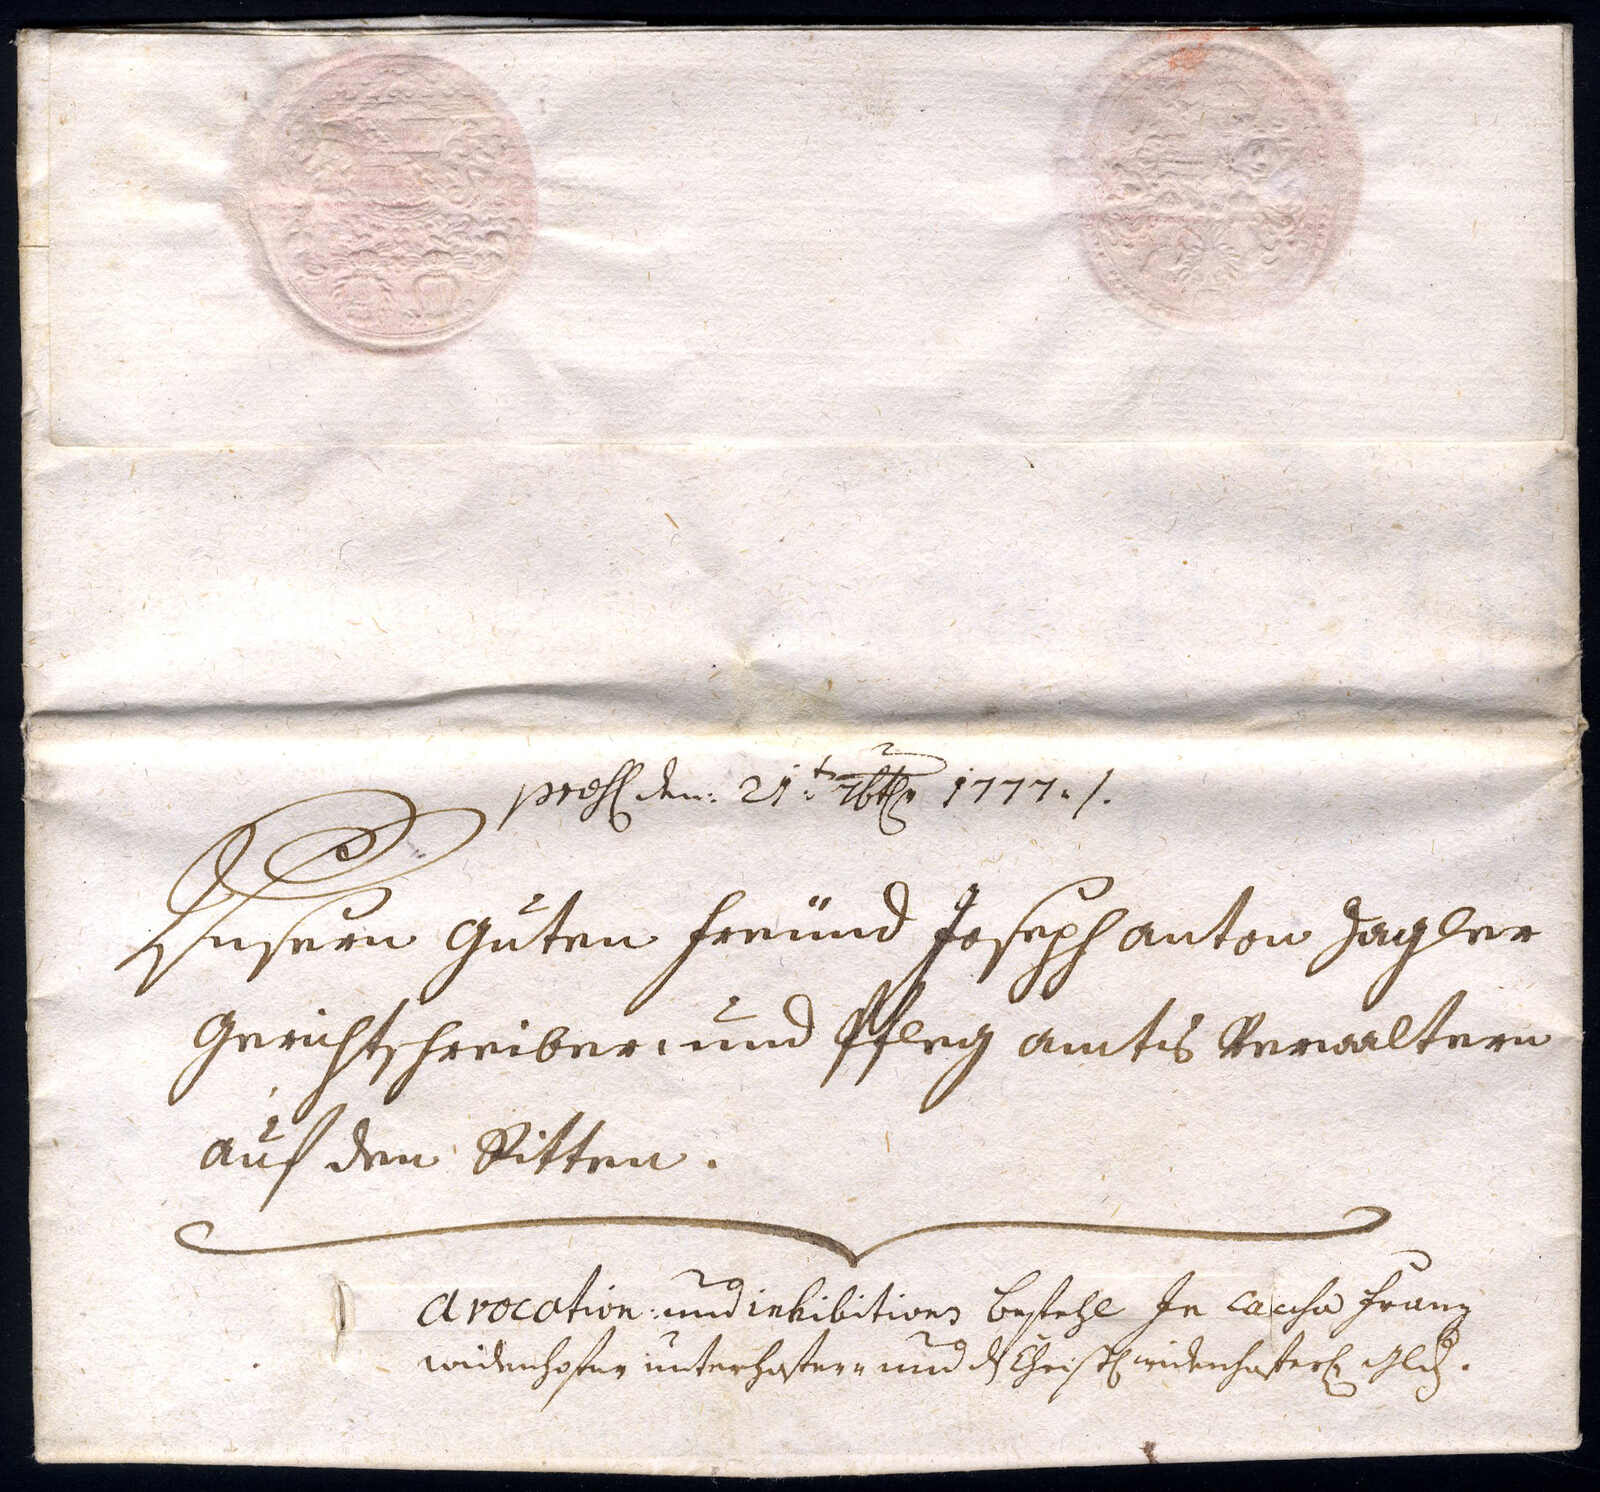 den: 21t. 7br 1777 ./.
Unsern guten Freünd Joseph anton Zagler
Gerichtschreiber: und Pfleg amts Verwaltern
auf den Ritten.
Avocation: und inhibitions befehl In causa Franz
widenhofer unterhofer: und